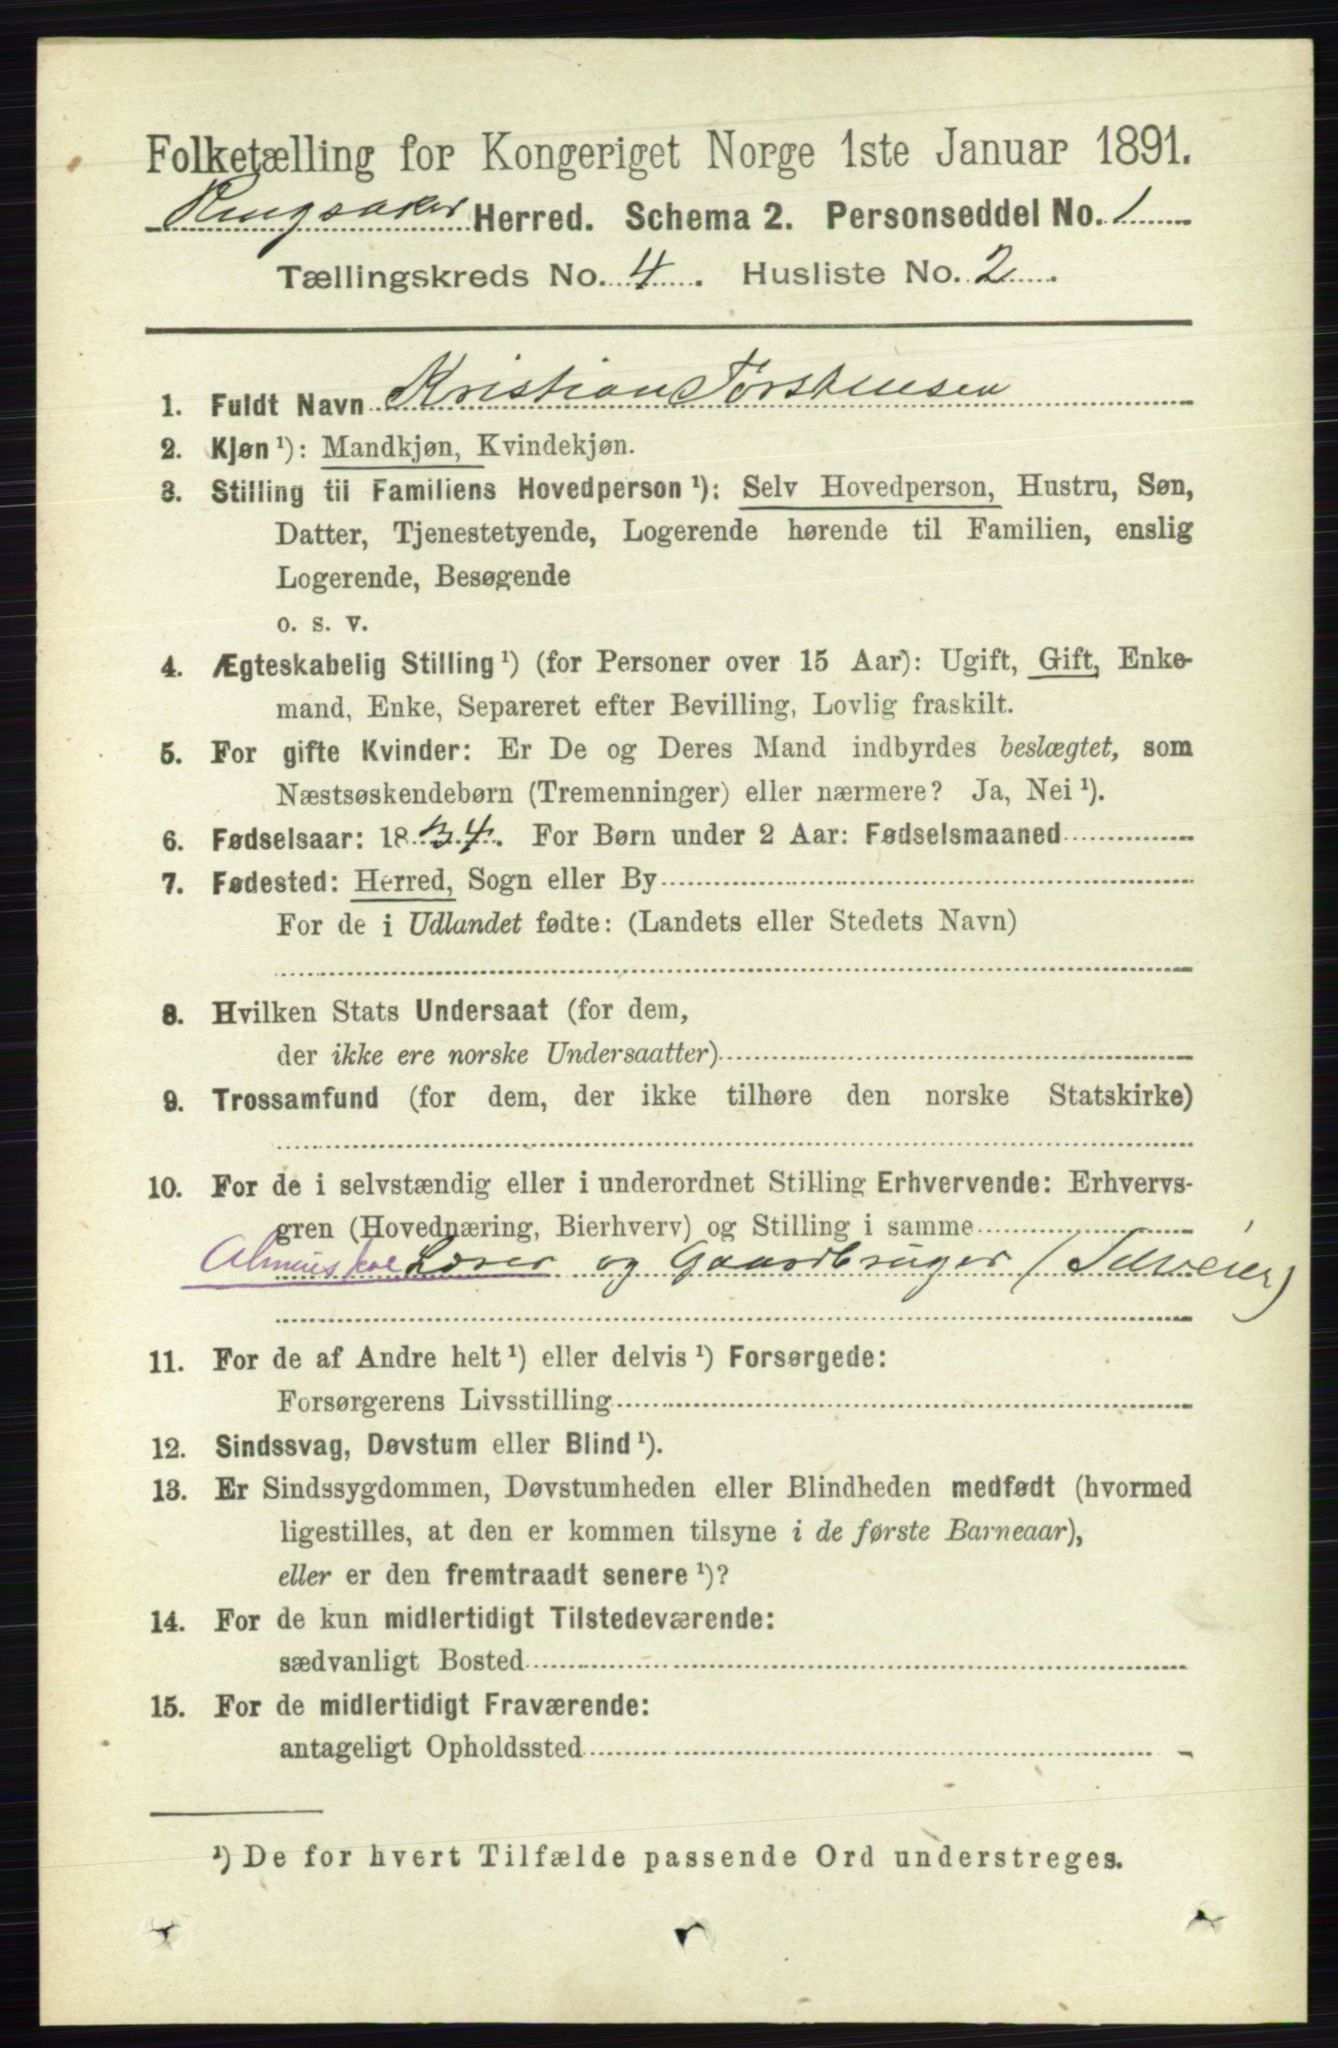 Folketælling for Kongeriget Norge 1ste Januar 1891.
Ringsaker Herred. Schema 2. Personseddel No. 1
Tællingskreds No. 4. Husliste No. 2.
1. Fuldt Navn Kristian Torstensen
2. Kjøn ¹): Mandkjøn, Kvindekjøn.
3. Stilling til Familiens Hovedperson ¹): Selv Hovedperson, Hustru, Søn,
Datter, Tjenestetyende, Logerende hørende til Familien, enslig
Logerende, Besøgende
o. s. v.
4. Ægteskabelig Stilling ¹) (for Personer over 15 Aar): Ugift, Gift, Enke-
mand, Enke, Separeret efter Bevilling, Lovlig fraskilt.
5. For gifte Kvinder: Er De og Deres Mand indbyrdes beslægtet, som
Næstsøskendebørn (Tremenninger) eller nærmere? Ja, Nei ¹).
6. Fødselsaar: 1834. For Børn under 2 Aar: Fødselsmaaned
7. Fødested: Herred, Sogn eller By
For de i Udlandet fødte: (Landets eller Stedets Navn)
8. Hvilken Stats Undersaat (for dem,
der ikke ere norske Undersaatter)
9. Trossamfund (for dem, der ikke tilhøre den norske Statskirke)
10. For de i selvstændig eller i underordnet Stilling Erhvervende: Erhvervs-
gren (Hovednæring, Bierhverv) og Stilling i samme
Almuskole Lærer og Gaardbruger (Selveier)
11. For de af Andre helt ¹) eller delvis ¹) Forsørgede:
Forsørgerens Livsstilling
12. Sindssvag, Døvstum eller Blind ¹).
13. Er Sindssygdommen, Døvstumheden eller Blindheden medfødt (hvormed
ligestilles, at den er kommen tilsyne i de første Barneaar),
eller er den fremtraadt senere ¹)?
14. For de kun midlertidigt Tilstedeværende:
sædvanligt Bosted
15. For de midlertidigt Fraværende:
antageligt Opholdssted
¹) De for hvert Tilfælde passende Ord understreges.